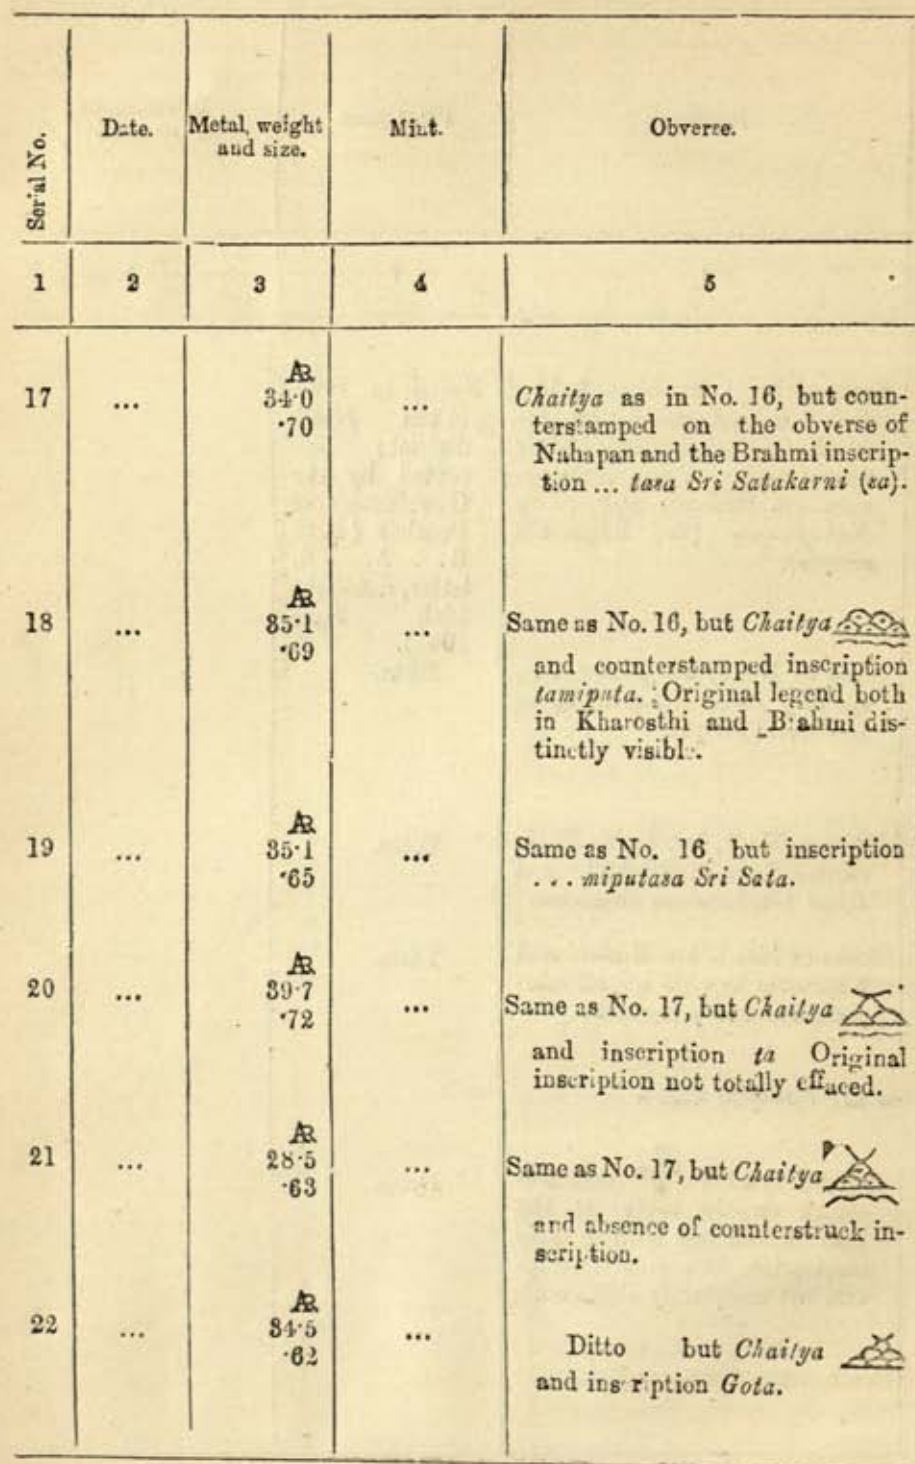 Serial No.
Date.
Metal, weight
and size.
Mint.
Obverse.
1 2 3 4 5
17 ... AR 34·0 ·70 ... Chaitya as in No. 16, but coun-
terstamped on the obverse of
Nahapan and the Brahmi inscrip-
tion ... tasa Sri Satakarni (sa).
18 ... AR 35·1 ·69 ... Same as No. 16, but Chaitya
and counterstamped inscription
tamiputa. Original legend both
in Kharosthi and Brahmi dis-
tinctly visible.
19 ... AR 35·1 ·65 ... Same as No. 16 but inscription
... miputasa Sri Sata.
20 ... AR 39·7 ·72 ... Same as No. 17, but Chaitya
and inscription ta Original
inscription not totally effaced.
21 ... AR 28·5 ·63 ... Same as No. 17, but Chaitya
and absence of counterstruck in-
scription.
22 ... AR 34·5 ·62 ... Ditto but Chaitya
and inscription Gota.